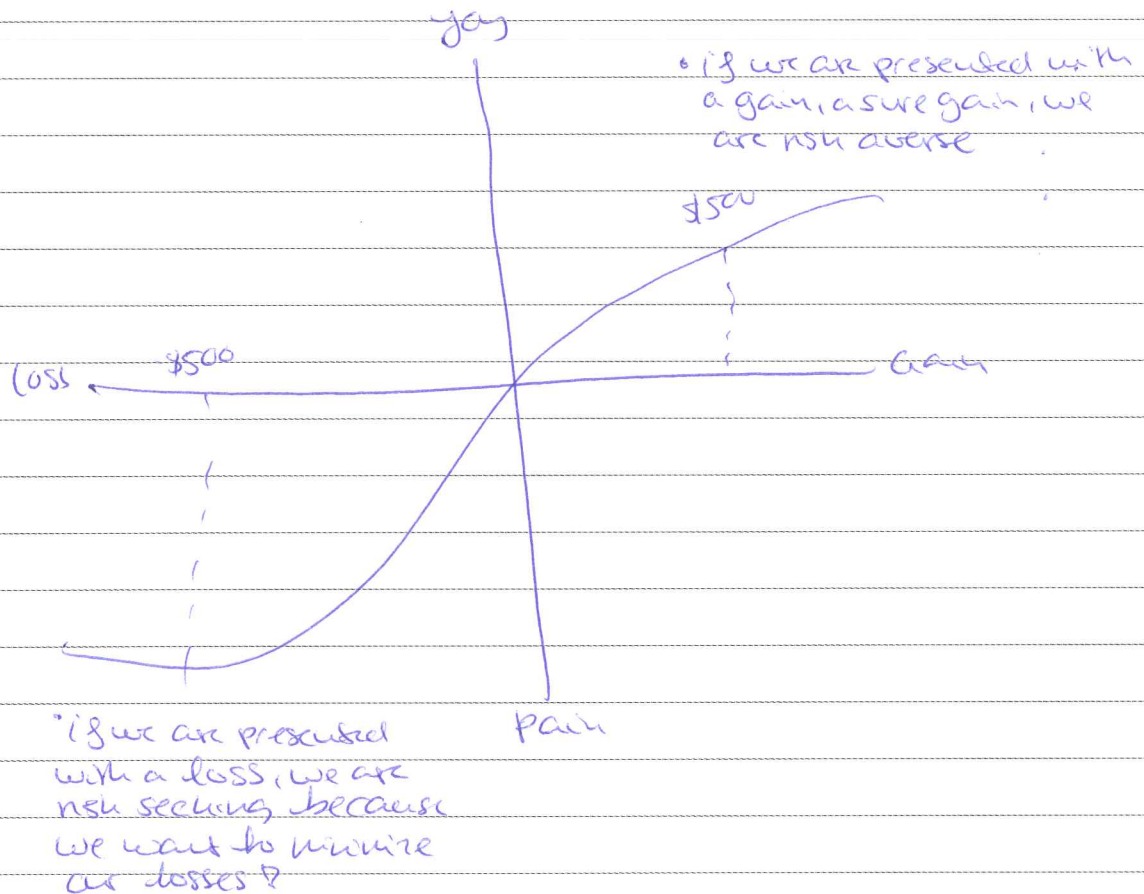 joy
• if we are presented with
a gain, a sure gain, we
are risk averse
$500
$500
loss
Gain
pain
• if we are presented
with a loss, we are
risk seeking because
we want to minimize
our losses